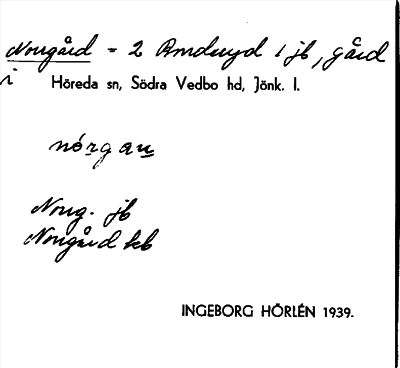 Norrgård = 2 Amdryd 1 jb, gård
i Höreda sn, Södra Vedbo hd, Jönk. l.
nórgaṉ
Norrg. jb
Norrgård kb
INGEBORG HÖRLÉN 1939.